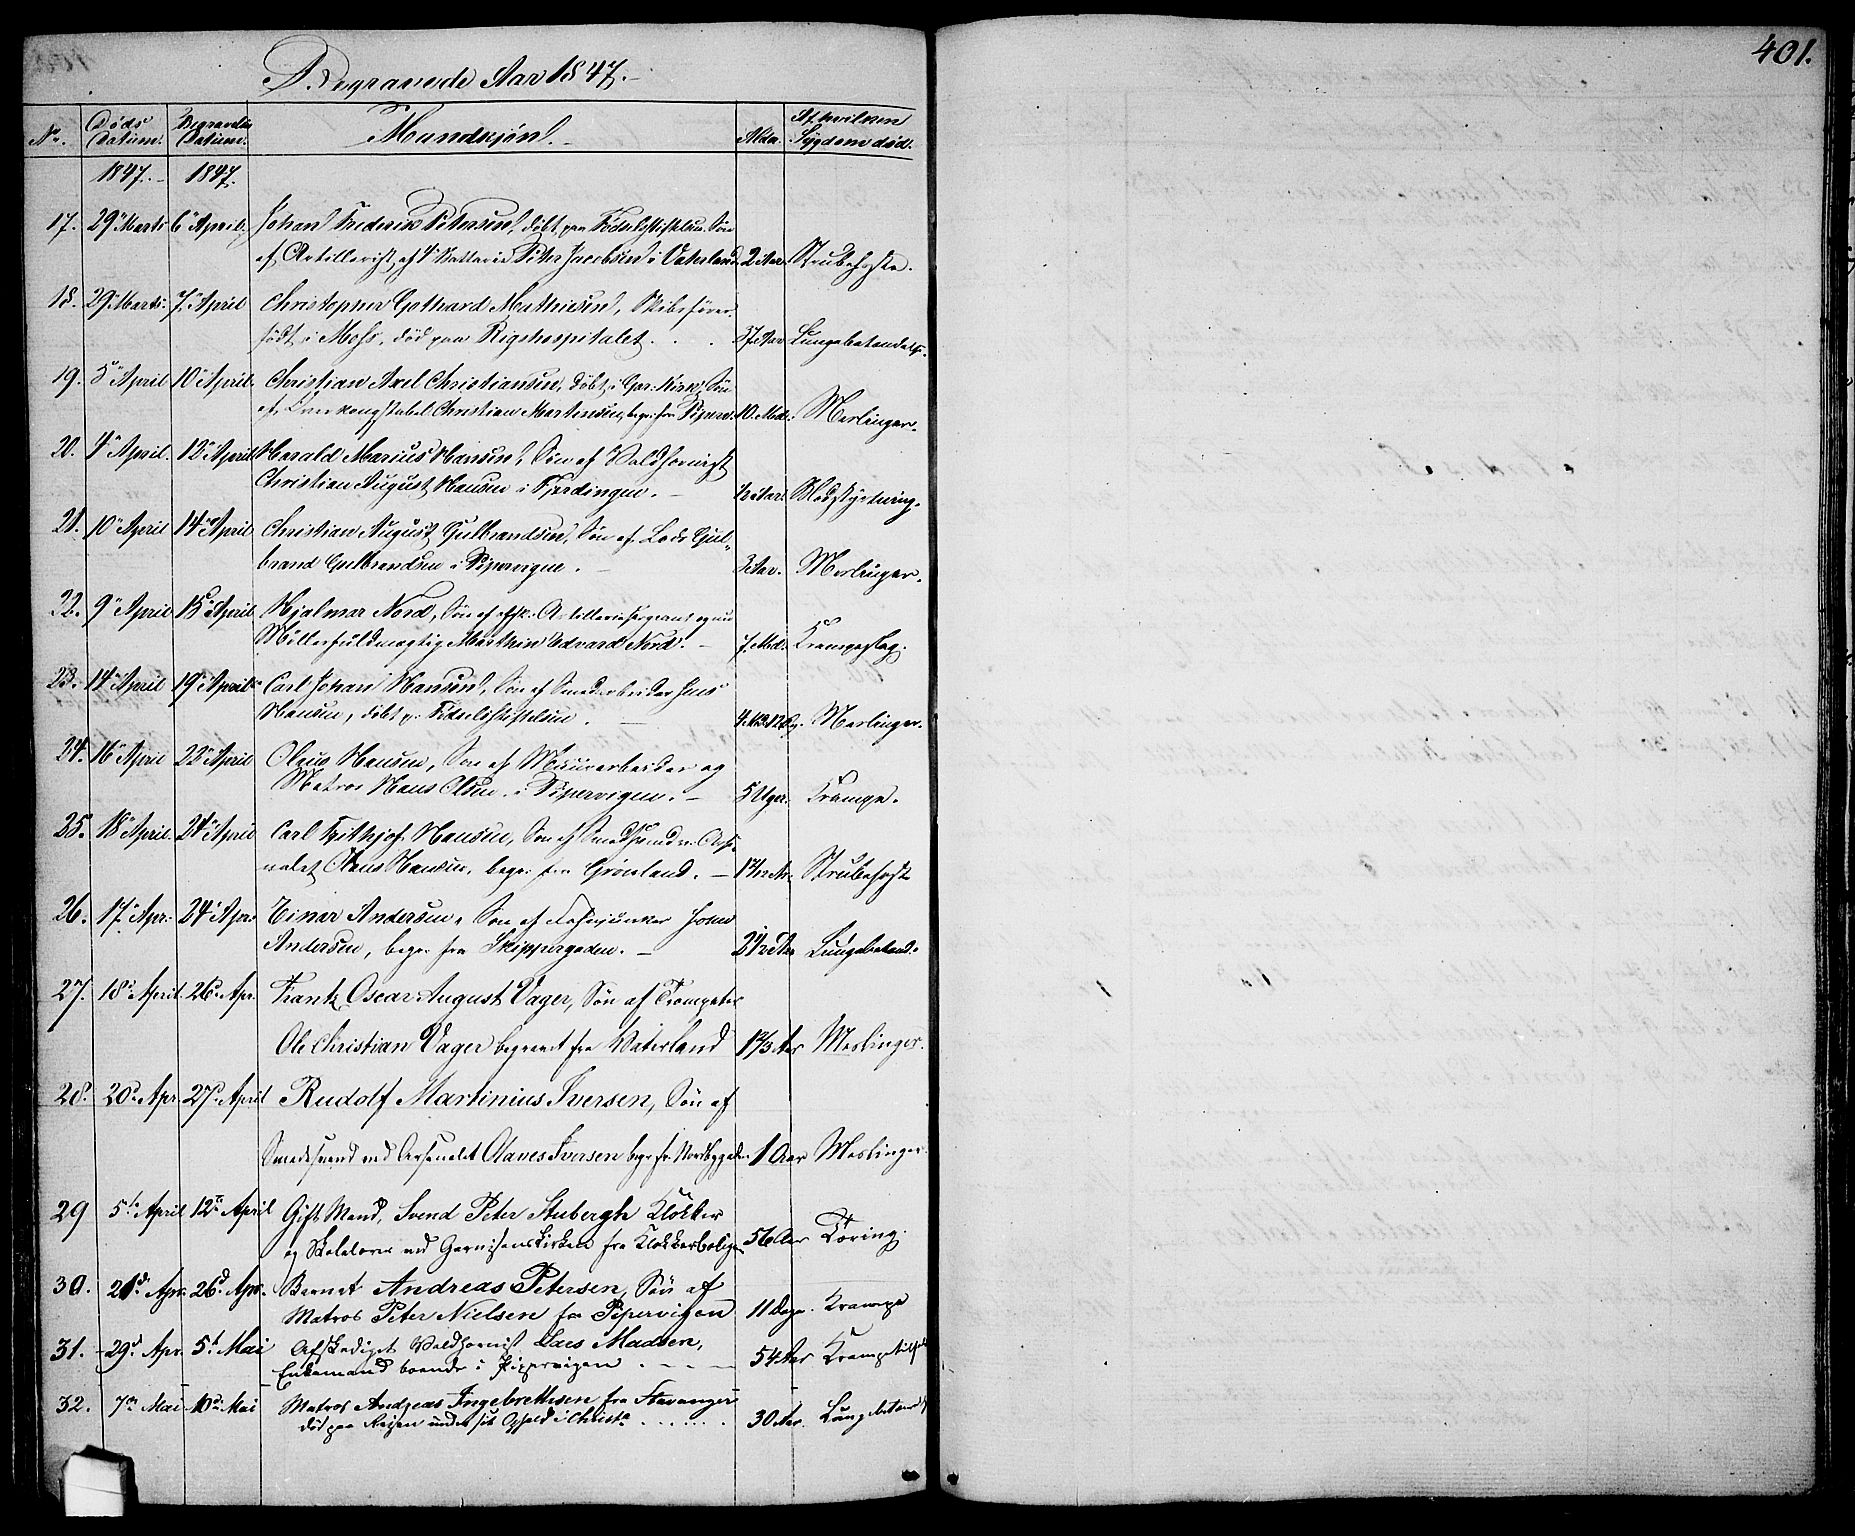 401.
Begravede Aar 1847.
No. Døds Datum. Begravelses Datum. Mandkjøn. Alder. Af hvilken Sygdom død.
1847. 1847.
17. 29 Marts 6 April. Johan Frederik Petersen, døbt paa Fødselsstiftelsen Søn
af Artillerist af 4 Batterie Peter Jacobsen i Vaterland 2 Aar. Strubehoste.
18. 29 Marts 7 April Christopher Gothard Mathiesen, Skibsfører
født i Moss, død paa Rigshospitalet . . . 37 Aar Lungebetændelse.
19. 5 April 10 April. Christian Axel Christiansen, døbt i Gar: Kirke, Søn
af Christian Martinsen, begr. fra Piperv. 10 Md. Meslinger.
20. 4 April. 12 April Harald Marius Hansen, Søn af Valdhornist
Christian August Hansen i Fjerdingen. Blodstyrtning.
21. 10 April 14 April Christian August Gulbrandsen, Søn af Lods Gul-
brand Gulbrandsen i Pipervigen. 3 Aar. Meslinger.
22. 9 April 15 April Hjalmar Nord, Søn af afsk. Artillerie Sergeant og nu
Møllerfuldmægtig Marthin Edvard Nord. 7 Md. Krampeslag.
23. 14 April 19 April Carl Johan Hansen, Søn af Smedarbeider Jens
Hansen, døbt p. Fødselsstiftelsen. Meslinger.
24. 16 April 22 April Olaus Hansen, Søn af Muurarbeider og
Matros Hans Olsen i Pipervigen. 5 Uger. Krampe.
25. 18 April. 24 April Carl Frithjof Hansen, Søn af Smedsvend v. Arse-
nalet Olaus Hansen, begr. fra Grønland. Strubehoste
26. 17 Apr. 24 Apr. Einar Andersen, Søn af Fahnjunker
Andersen, begr. fra Skippergaden. 2 1/2 Aar Lungebetænd.
27. 18 April. 26 Apr. Frantz Oscar August Vager, Søn af Trompeter
Ole Christian Vager begravet fra Vaterland 1 2/3 Aar Meslinger.
28. 20 Apr. 27 April Rudolf Martinius Iversen, Søn af
Smedsvend ved Arsenalet Olaves Iversen begr. fr. Nordbygaden 1 Aar Meslinger.
29 5te April 12te April Gift Mand, Svend Peter Stubergh Klokker
og Skolelærer ved Garnisonskirken fra Klokkerboligen 56 Aar Tæring.
30. 21de Apr. 26de Apr. Barnet Andreas Petersen, Søn af
Matros Peter Nielsen fra Pipervigen 11 Dage. Krampe
31. 29de Apr. 5te Mai Afskediget Valdhornist Lars Madsen,
Enkemand boende i Pipervigen . - - - 54 Aar Krampetilfælde
32. 7de Mai 10de Mai Matros Andreas Ingebrethsen fra Stavanger
død paa Reisen under sit Ophold i Christa . . . . . . 30 Aar. Lungebetændelse